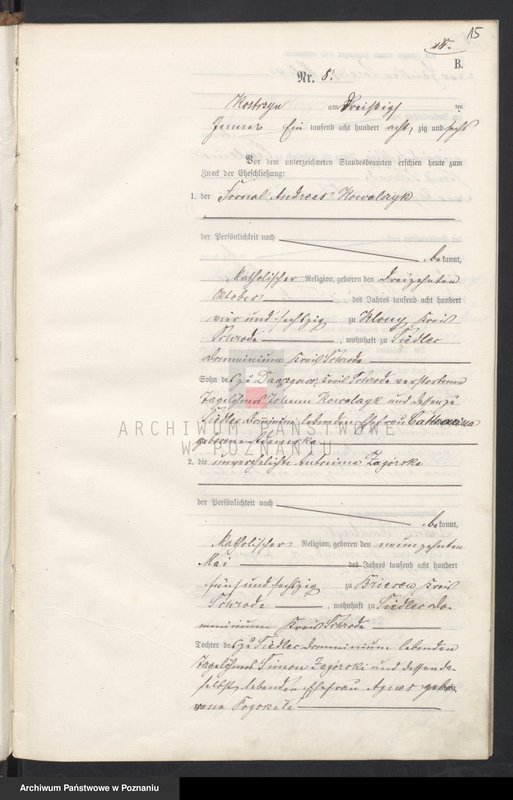 15
15.
B.
Nr. 8.
Kostrzyn am dreißig ten
Januar Ein tausend acht hundert acht zig und sechs
Vor dem unterzeichneten Standesbeamten erschien heute zum
Zweck der Eheschließung:
1. der Fornal Andreas Kowalczyk
der Persönlichkeit nach
be kannt,
katholischer Religion, geboren den dreizehnten
Oktober des Jahres tausend acht hundert
vier und sechzig zu Klony, Kreis
Schroda, wohnhaft zu Siedlec
Dominium, Kreis Schroda
Sohn des zu Kreis Schroda verstorbenen
Tagelöhners Johann Kowalczyk und dessen zu
Siedlec Dominium lebenden Ehefrau Catharina
geborene
ARCHIWUM PAŃSTWOWE
W POZNANIU
2. die unverehelichte Antonina Zagórska
der Persönlichkeit nach
be kannt,
katholischer Religion, geboren den neunzehnten
Mai des Jahres tausend acht hundert
fünf und sechzig zu Kreis
Schroda, wohnhaft zu Siedlec Do-
minium Kreis Schroda
Tochter des zu Siedlec Dominium lebenden
Tagelöhners Simon Zagórski und dessen da-
selbst lebenden Ehefrau Agnes gebo-
rene
Archiwum Państwowe w Poznaniu